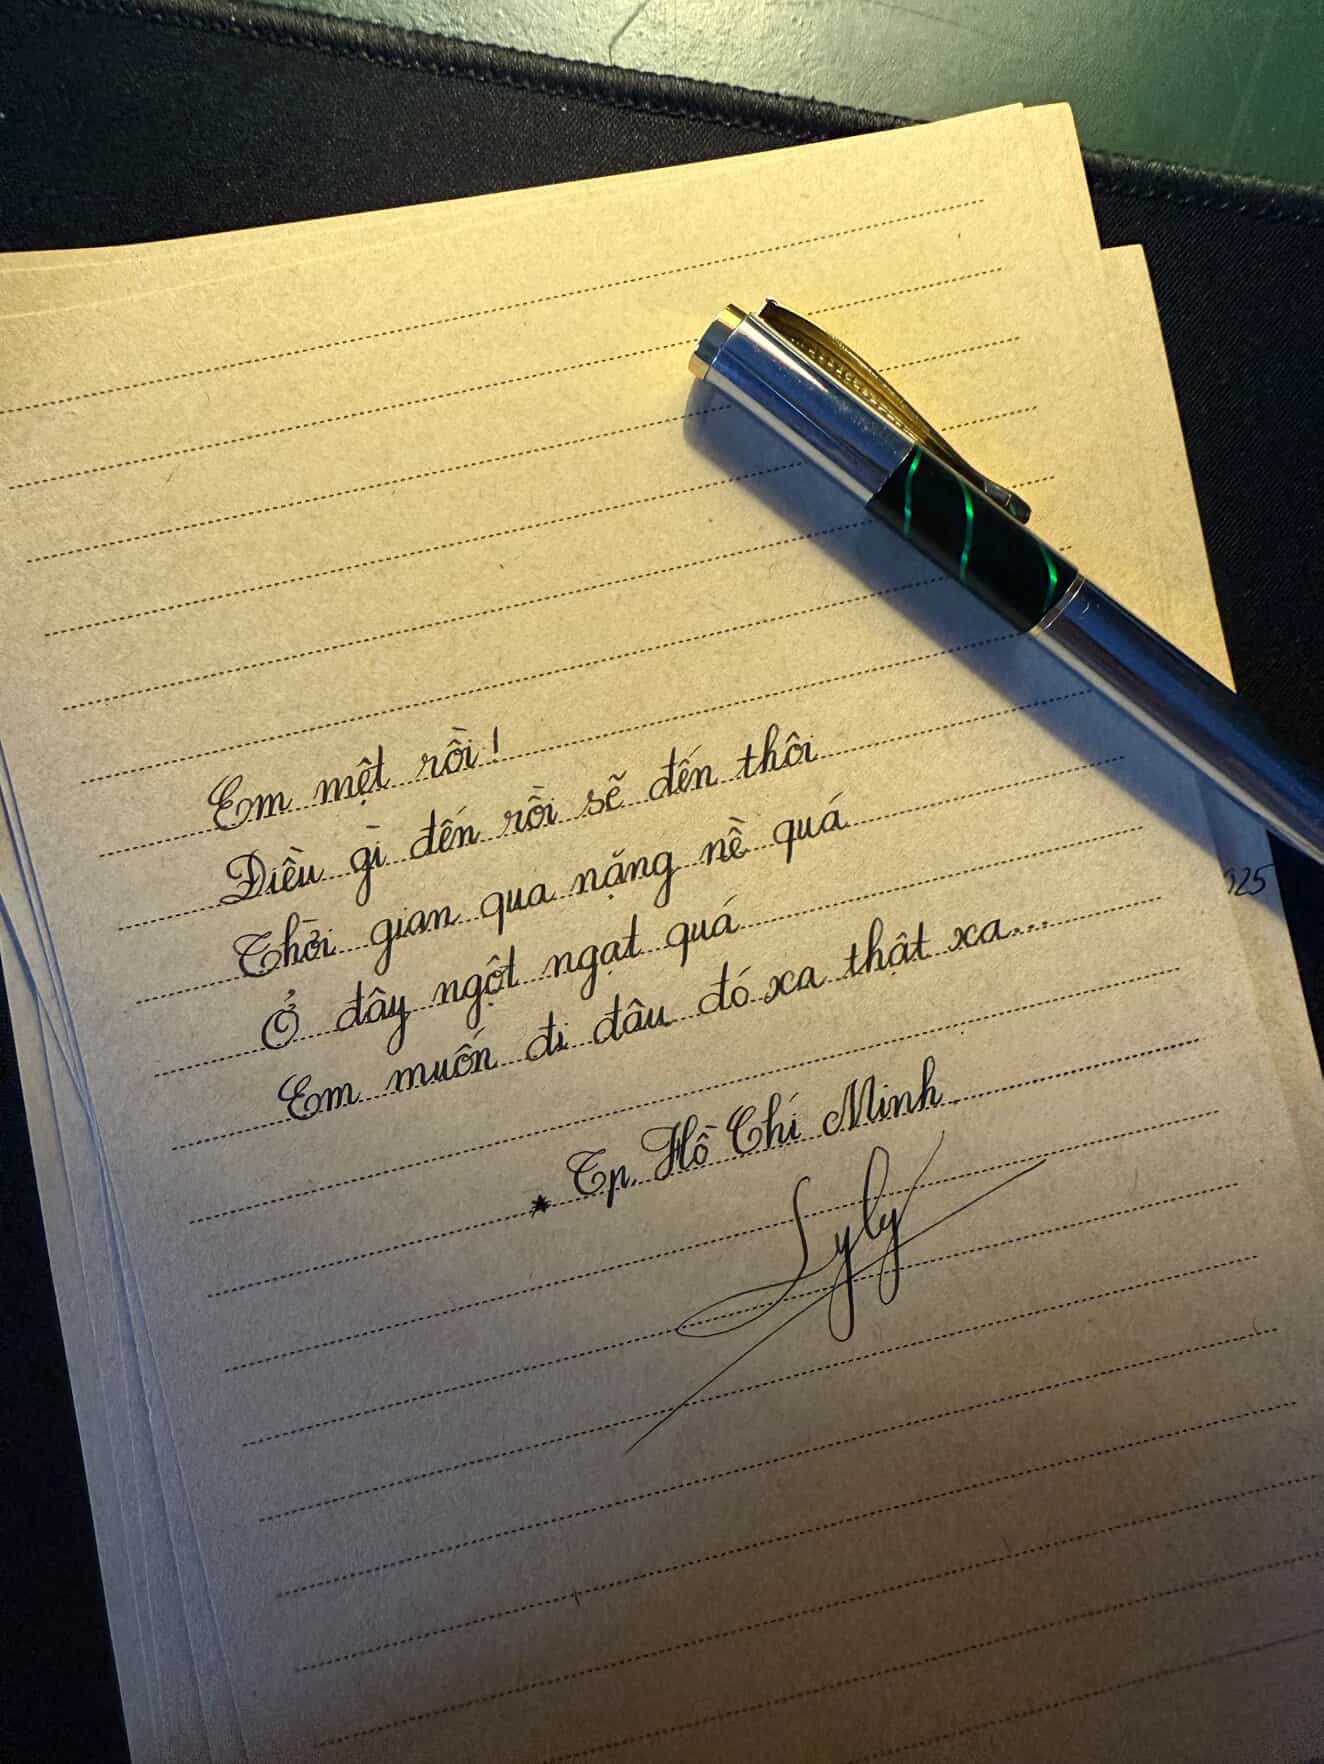 Em mệt rồi!
Điều gì đến rồi sẽ đến thôi
Thời gian qua nặng nề quá
Ở đây ngột ngạt quá
Em muốn đi đâu đó xa thật xa...
* Tp. Hồ Chí Minh
Lyly
025